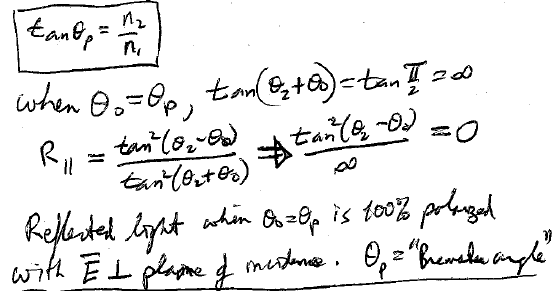 tanθₚ = n₂/n₁
when θ₀=θₚ, tan(θ₂+θ₀)=tan π/2 = ∞
R∥ = tan²(θ₂-θ₀)/tan²(θ₂+θ₀) ⇒ tan²(θ₂-θ₀)/∞ = 0
Reflected light when θ₀=θₚ is 100% polarized
with E̅ ⊥ plane of incidence. θₚ = "Brewster angle"